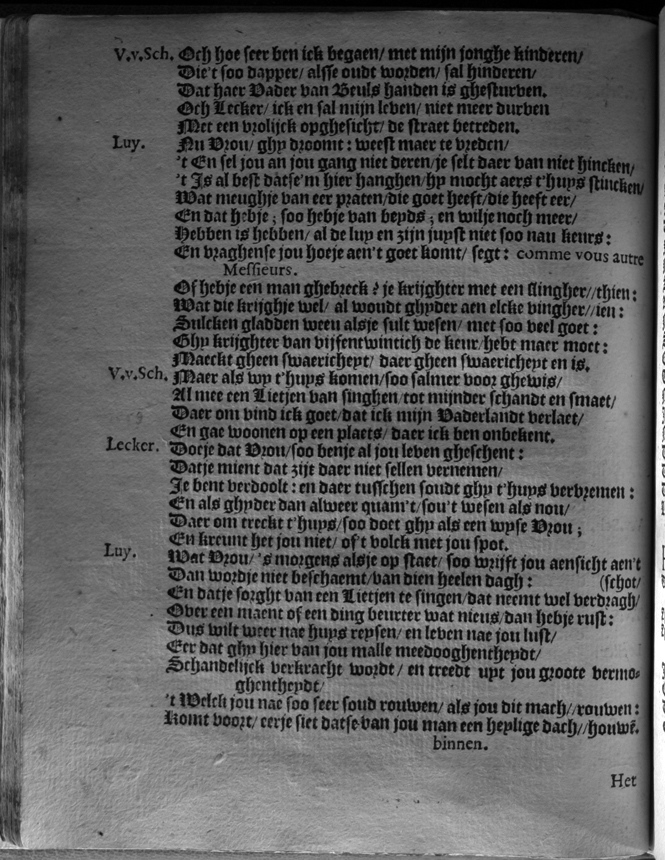 V.v.Sch. Och hoe seer ben ick begaen/ met mijn jonghe kinderen/
Die't soo dapper/ alsse oudt worden/ sal hinderen/
Dat haer Vader van Beuls handen is ghesturven.
Och Lecker/ ick en sal mijn leven/ niet meer durven
Met een vrolijck opghesicht/ de straet betreden.
Luy. Nu Vrou/ ghy droomt: weest maer te vreden/
't En sel jou an jou gang niet deren/ je selt daer van niet hincken/
't Is al best datse'm hier hanghen/ hy mocht aers t'huys stincken/
Wat meughje van eer praten/ die goet heeft/ die heeft eer/
En dat hebje; soo hebje van beyds; en wilje noch meer/
Hebben is hebben/ al de luy en zijn juyst niet soo nau keurs:
En vraghense jou hoeje aen't goet komt/ segt: comme vous autre
Messieurs.
Of hebje een man ghebreck? je krijghter met een slingher//thien:
Wat die krijghje wel/ al woudt ghyder aen elcke vingher//ien:
Sulcken gladden weeu alsje sult wesen/ met soo veel goet:
Ghy krijghter van vijfentwintich de keur/ hebt maer moet:
Maeckt gheen swaericheyt/ daer gheen swaericheyt en is.
V.v.Sch. Maer als wy t'huys komen/ soo salmer voor ghewis/
Al mee een Lietjen van singhen/ tot mijnder schandt en smaet/
Daer om vind ick goet/ dat ick mijn Vaderlandt verlaet/
En gae woonen op een plaets/ daer ick ben onbekent.
Lecker. Doeje dat Vrou/ soo benje al jou leven gheschent:
Datje mient dat zijt daer niet sellen vernemen/
Je bent verdoolt: en daer tusschen soudt ghy t'huys vervremen:
En als ghyder dan alweer quam't/ sou't wesen als nou/
Daer om treckt t'huys/ soo doet ghy als een wyse Vrou;
En kreunt het jou niet/ of't volck met jou spot.
Luy. Wat Vrou/ 's morgens alsje op staet/ soo wrijft jou aensicht aen't
Dan wordje niet beschaemt/ van dien heelen dagh: (schot/
En datje sorght van een Lietjen te singen/ dat neemt wel verdragh/
Over een maent of een ding beurter wat nieus/ dan hebje rust:
Dus wilt weer nae huys reysen/ en leven nae jou lust/
Eer dat ghy hier van jou malle meedooghentheydt/
Schandelijck verkracht wordt/ en treedt uyt jou groote vermo-
ghentheydt/
't Welck jou nae soo seer soud rouwen/ als jou dit mach//rouwen:
Komt voort/ eerje siet datse van jou man een heylige dach//houwẽ.
binnen.
Het